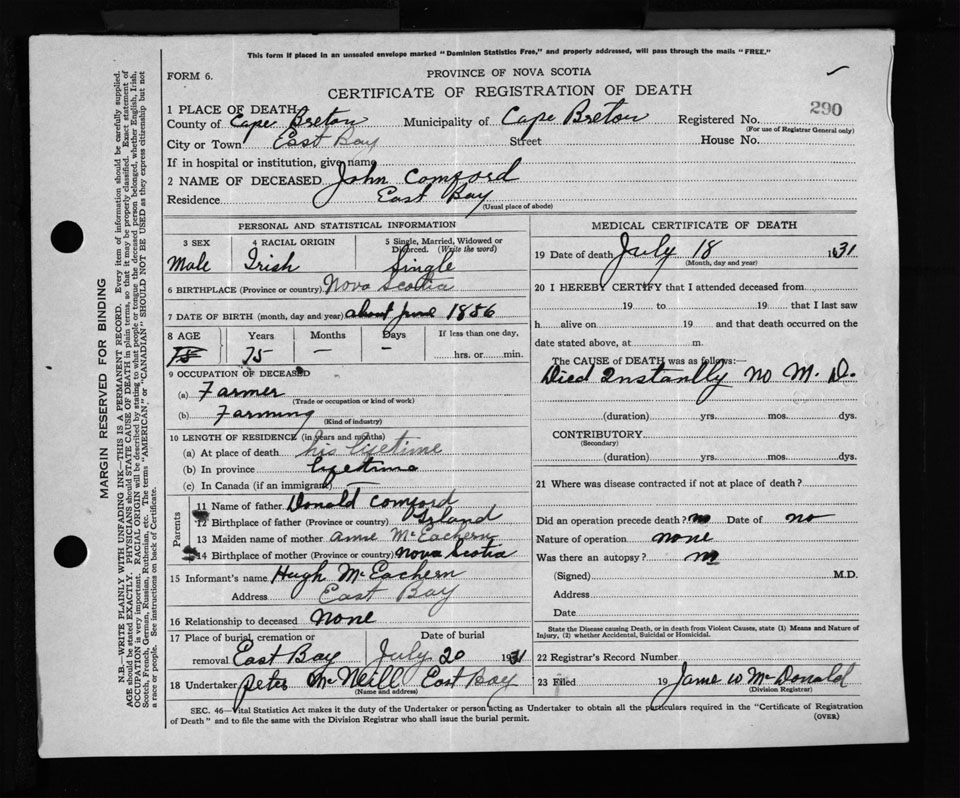 This form if placed in an unsealed envelope marked "Dominion Statistics Free," and properly addressed, will pass through the mails "FREE."
FORM 6.
PROVINCE OF NOVA SCOTIA
CERTIFICATE OF REGISTRATION OF DEATH
290
1 PLACE OF DEATH
County of Cape Breton Municipality of Cape Breton Registered No.
(For use of Registrar General only)
City or Town East Bay Street House No.
If in hospital or institution, give name
2 NAME OF DECEASED John Comford
Residence East Bay
(Usual place of abode)
PERSONAL AND STATISTICAL INFORMATION
3 SEX 4 RACIAL ORIGIN 5 Single, Married, Widowed or Divorced. (Write the word)
Male Irish Single
6 BIRTHPLACE (Province or country) Nova Scotia
7 DATE OF BIRTH (month, day and year) about June 1856
8 AGE Years Months Days If less than one day,
75 75 — — hrs. or min.
9 OCCUPATION OF DECEASED
(a) Farmer
(Trade or occupation or kind of work)
(b) Farming
(Kind of industry)
10 LENGTH OF RESIDENCE (in years and months)
(a) At place of death his lifetime
(b) In province lifetime
(c) In Canada (if an immigrant) —
Parents
11 Name of father Donald Comford
12 Birthplace of father (Province or country) Irland
13 Maiden name of mother Anne McEachern
14 Birthplace of mother (Province or country) Nova Scotia
15 Informant's name Hugh McEachern
Address East Bay
16 Relationship to deceased None
17 Place of burial, cremation or Date of burial
removal East Bay July 20 1931
18 Undertaker Peter McNeill East Bay
(Name and address)
MEDICAL CERTIFICATE OF DEATH
19 Date of death July 18 1931
(Month, day and year)
20 I HEREBY CERTIFY that I attended deceased from
19 to 19 that I last saw
h alive on 19 and that death occurred on the
date stated above, at m.
The CAUSE of DEATH was as follows:—
Died Instantly No M. D.
(duration) yrs. mos. dys.
CONTRIBUTORY
(Secondary)
(duration) yrs. mos. dys.
21 Where was disease contracted if not at place of death?
Did an operation precede death? no Date of no
Nature of operation none
Was there an autopsy? no
(Signed) M.D.
Address
Date
State the disease causing Death, or in death from Violent Causes, state (1) Means and Nature of
Injury, (2) whether Accidental, Suicidal or Homicidal.
22 Registrar's Record Number
23 Filed 19 Jame W McDonald
(Division Registrar)
SEC. 46—Vital Statistics Act makes it the duty of the Undertaker or person acting as Undertaker to obtain all the particulars required in the "Certificate of Registration
of Death" and to file the same with the Division Registrar who shall issue the burial permit.
(OVER)
MARGIN RESERVED FOR BINDING
N.B.—WRITE PLAINLY WITH UNFADING INK—THIS IS A PERMANENT RECORD. Every item of information should be carefully supplied.
AGE should be stated EXACTLY. PHYSICIANS should STATE CAUSE OF DEATH in plain terms, so that it may be properly classified. Exact statement of
OCCUPATION is very important. RACIAL ORIGIN will be described by stating to what people or tongue the deceased person belonged, whether English, Irish,
Scotch, French, German, Russian, Ruthenian, etc. The terms "AMERICAN" or "CANADIAN" SHOULD NOT BE USED as they express citizenship but not
a race or people. See instructions on back of Certificate.